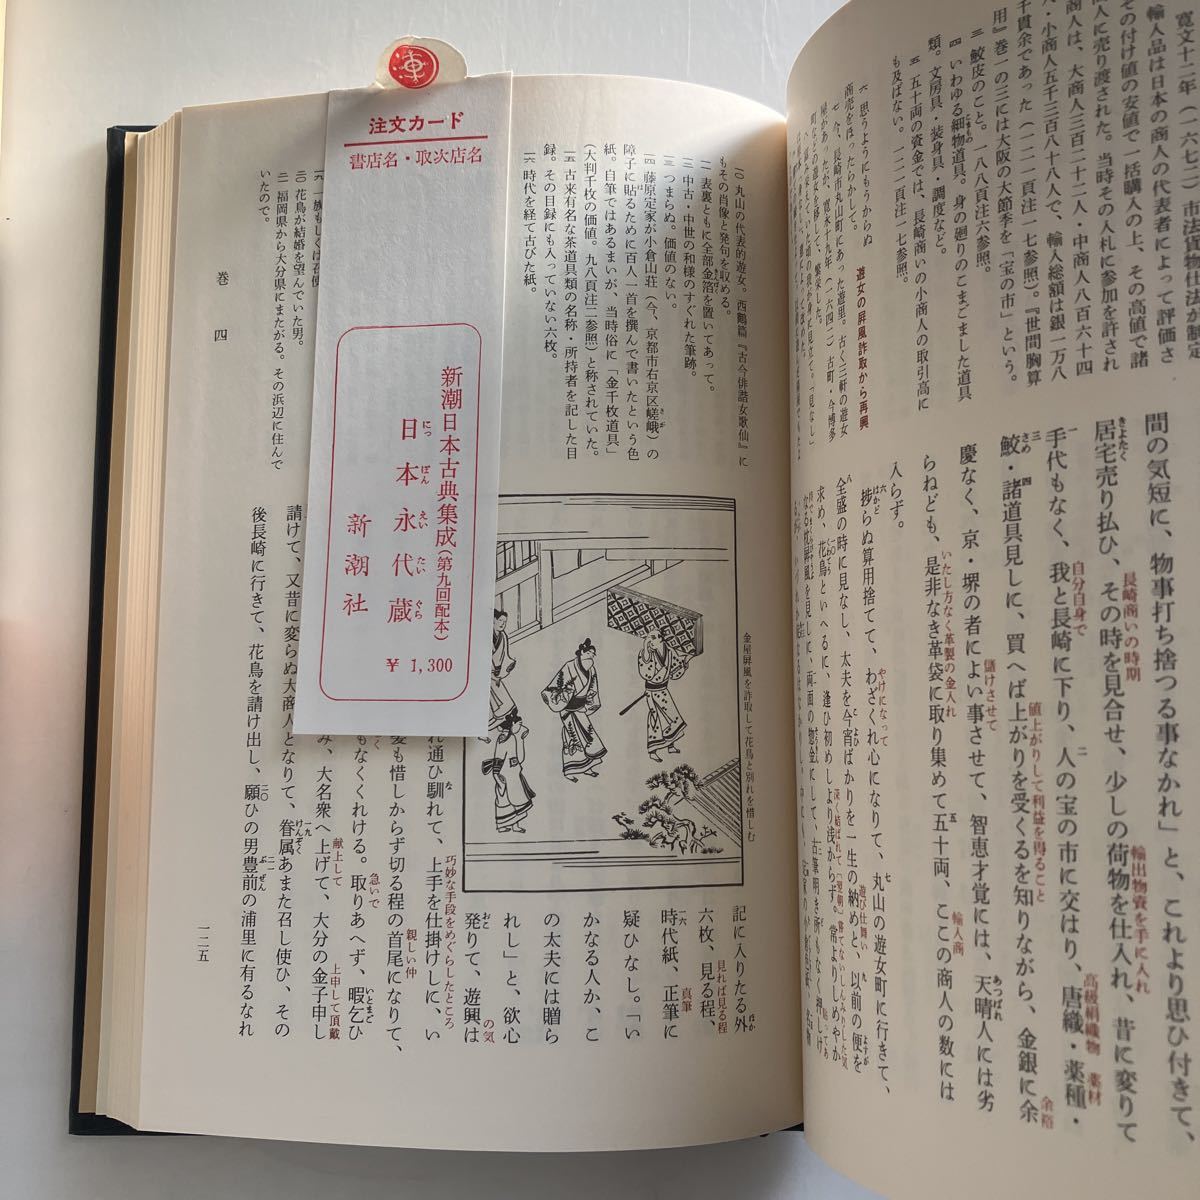 寛文十二年（一六七二）市法貨物仕法が制定
輸入品は日本の商人の代表者によって評価さ
その付け値の安値で一括購入の上、その高値で諸
人に売り渡された。当時その入札に参加を許され
商人は、大商人三百二十二人・中商人八百六十四
人・小商人五千三百八十八人で、輸入総額は銀一万八
千貫余であった（一二一頁注一七参照）。『世間胸算
用』巻一の三には大阪の大節季を「宝の市」という。
三 鮫皮のこと。一八八頁注六参照。
四 いわゆる細物道具。身の廻りのこまごました道具
類。文房具・装身具・調度など。
五 五十両の資金では、長崎商いの小商人の取引高に
も及ばない。一二一頁注一七参照。
遊女の屏風詐取から再興
六 思うようにもうからぬ
商売をほったらかして。
七 今、長崎市丸山町にあった遊里。古く三軒の遊女
屋があったが、寛永十九年（一六四二）古町・今博多
間の気短に、物事打ち捨つる事なかれ」と、これより思ひ付きて、
居宅売り払ひ、その時を見合せ、少しの荷物を仕入れ、昔に変りて
手代もなく、我と長崎に下り、人の宝の市に交はり、唐織・薬種・
鮫・諸道具見しに、買へば上がりを受くるを知りながら、金銀に余
慶なく、京・堺の者によい事させて、智恵才覚には、天晴人には劣
らねども、是非なき革袋に取り集めて五十両、ここの商人の数には
入らず。
捗らぬ算用捨てて、わざくれ心になりて、丸山の遊女町に行きて、
全盛の時に見なし、太夫を今宵ばかりを一生の納めと、以前の便を
求め、花鳥といへるに、逢ひ初めしより浅からず。常よりしめやか
長崎商いの時期
輸出物資を手に入れ
自分自身で
高級絹織物
薬材
値上がりして利益を得ること
余裕
儲けさせて
いたし方なく革製の金入れ
輸入商
やけになって
遊び仕舞い
一〇 丸山の代表的遊女。西鶴篇『古今俳諧女歌仙』に
もその肖像と発句を収める。
一一 表裏ともに全部金箔を置いてあって。
一二 中古・中世の和様のすぐれた筆跡。
一三 つまらぬ。価値のない。
一四 藤原定家が小倉山荘（今、京都市右京区嵯峨）の
障子に貼るために百人一首を撰んで書いたという色
紙。自筆ではあるまいが、当時俗に「金千枚道具」
（大判千枚の価値。九八頁注二参照）と称されていた。
一五 古来有名な茶道具類の名称・所持者を記した目
録。その目録にも入っていない六枚。
一六 時代を経て古びた紙。
金屋屏風を詐取して花鳥と別れを惜しむ
記に入りたる外
六枚、見る程、
時代紙、正筆に
疑ひなし。「い
かなる人か、こ
の太夫には贈ら
れし」と、欲心
発りて、遊興は
見れば見る程
真筆
の気
れ通ひ馴れて、上手を仕掛けしに、い
髪も惜しからず切る程の首尾になりて、
もなくくれける。取りあへず、暇乞ひ
み、大名衆へ上げて、大分の金子申し
請けて、又昔に変らぬ大商人となりて、眷属あまた召し使ひ、その
後長崎に行きて、花鳥を請け出し、願ひの男豊前の浦里に有るなれ
巧妙な手段をめぐらしたところ
親しい仲
急いで
献上して
上申して頂戴
二〇 花鳥が結婚を望んでいた男。
二一 福岡県から大分県にまたがる。その浜辺に住んで
いたので。
巻四
一二五
注文カード
書店名・取次店名
新潮日本古典集成（第九回配本）
日本永代蔵
にっぽんえいたいぐら
新潮社
¥1,300